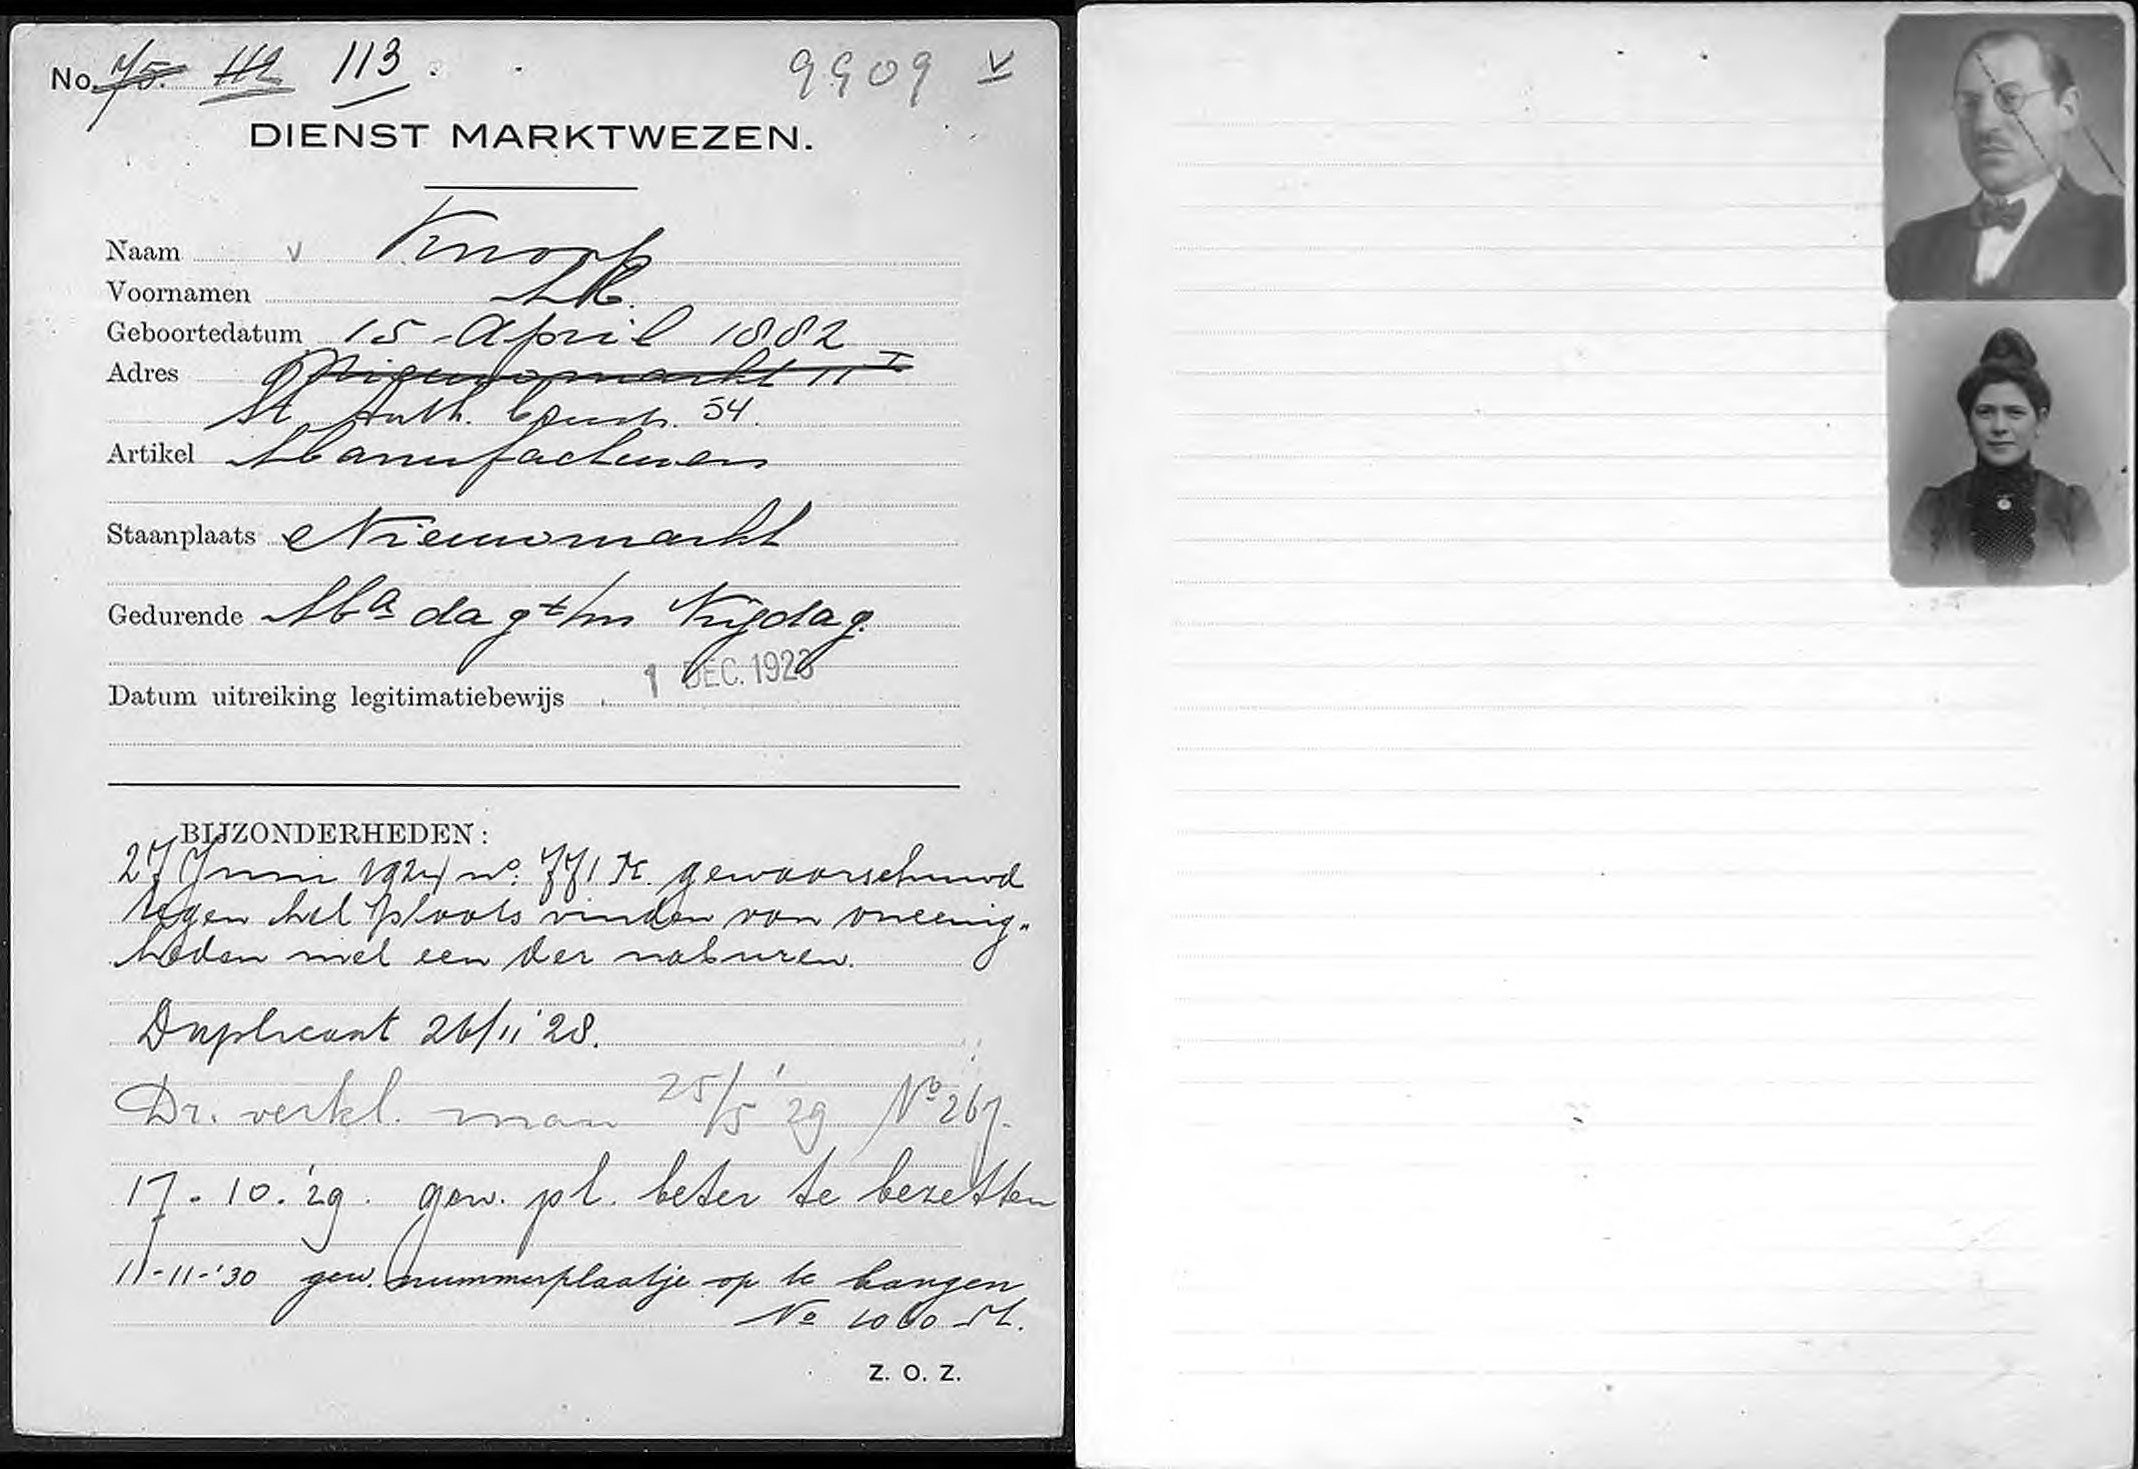 No. 75. 112 113. 9909 v
DIENST MARKTWEZEN.
Naam v Knoop
Voornamen M.
Geboortedatum 15 April 1882
Adres Nieuwmarkt 11 I
St. Anth. Breestr. 54.
Artikel Manufacturen
Staanplaats Nieuwmarkt
Gedurende Ma dag t/m Vrijdag.
1 DEC. 1923
Datum uitreiking legitimatiebewijs
BIJZONDERHEDEN:
27 Juni 1924 no. 771 M. gewaarschuwd
tegen het plaats vinden van oneenig-
heden met een der naburen.
Duplicaat 26/11 '28.
Dr. verkl. man 25/5 '29 No 267.
17.10.'29. gew. pl. beter te bezetten
11-11-'30 gew. nummerplaatje op te hangen
No 1060 M.
Z. O. Z.